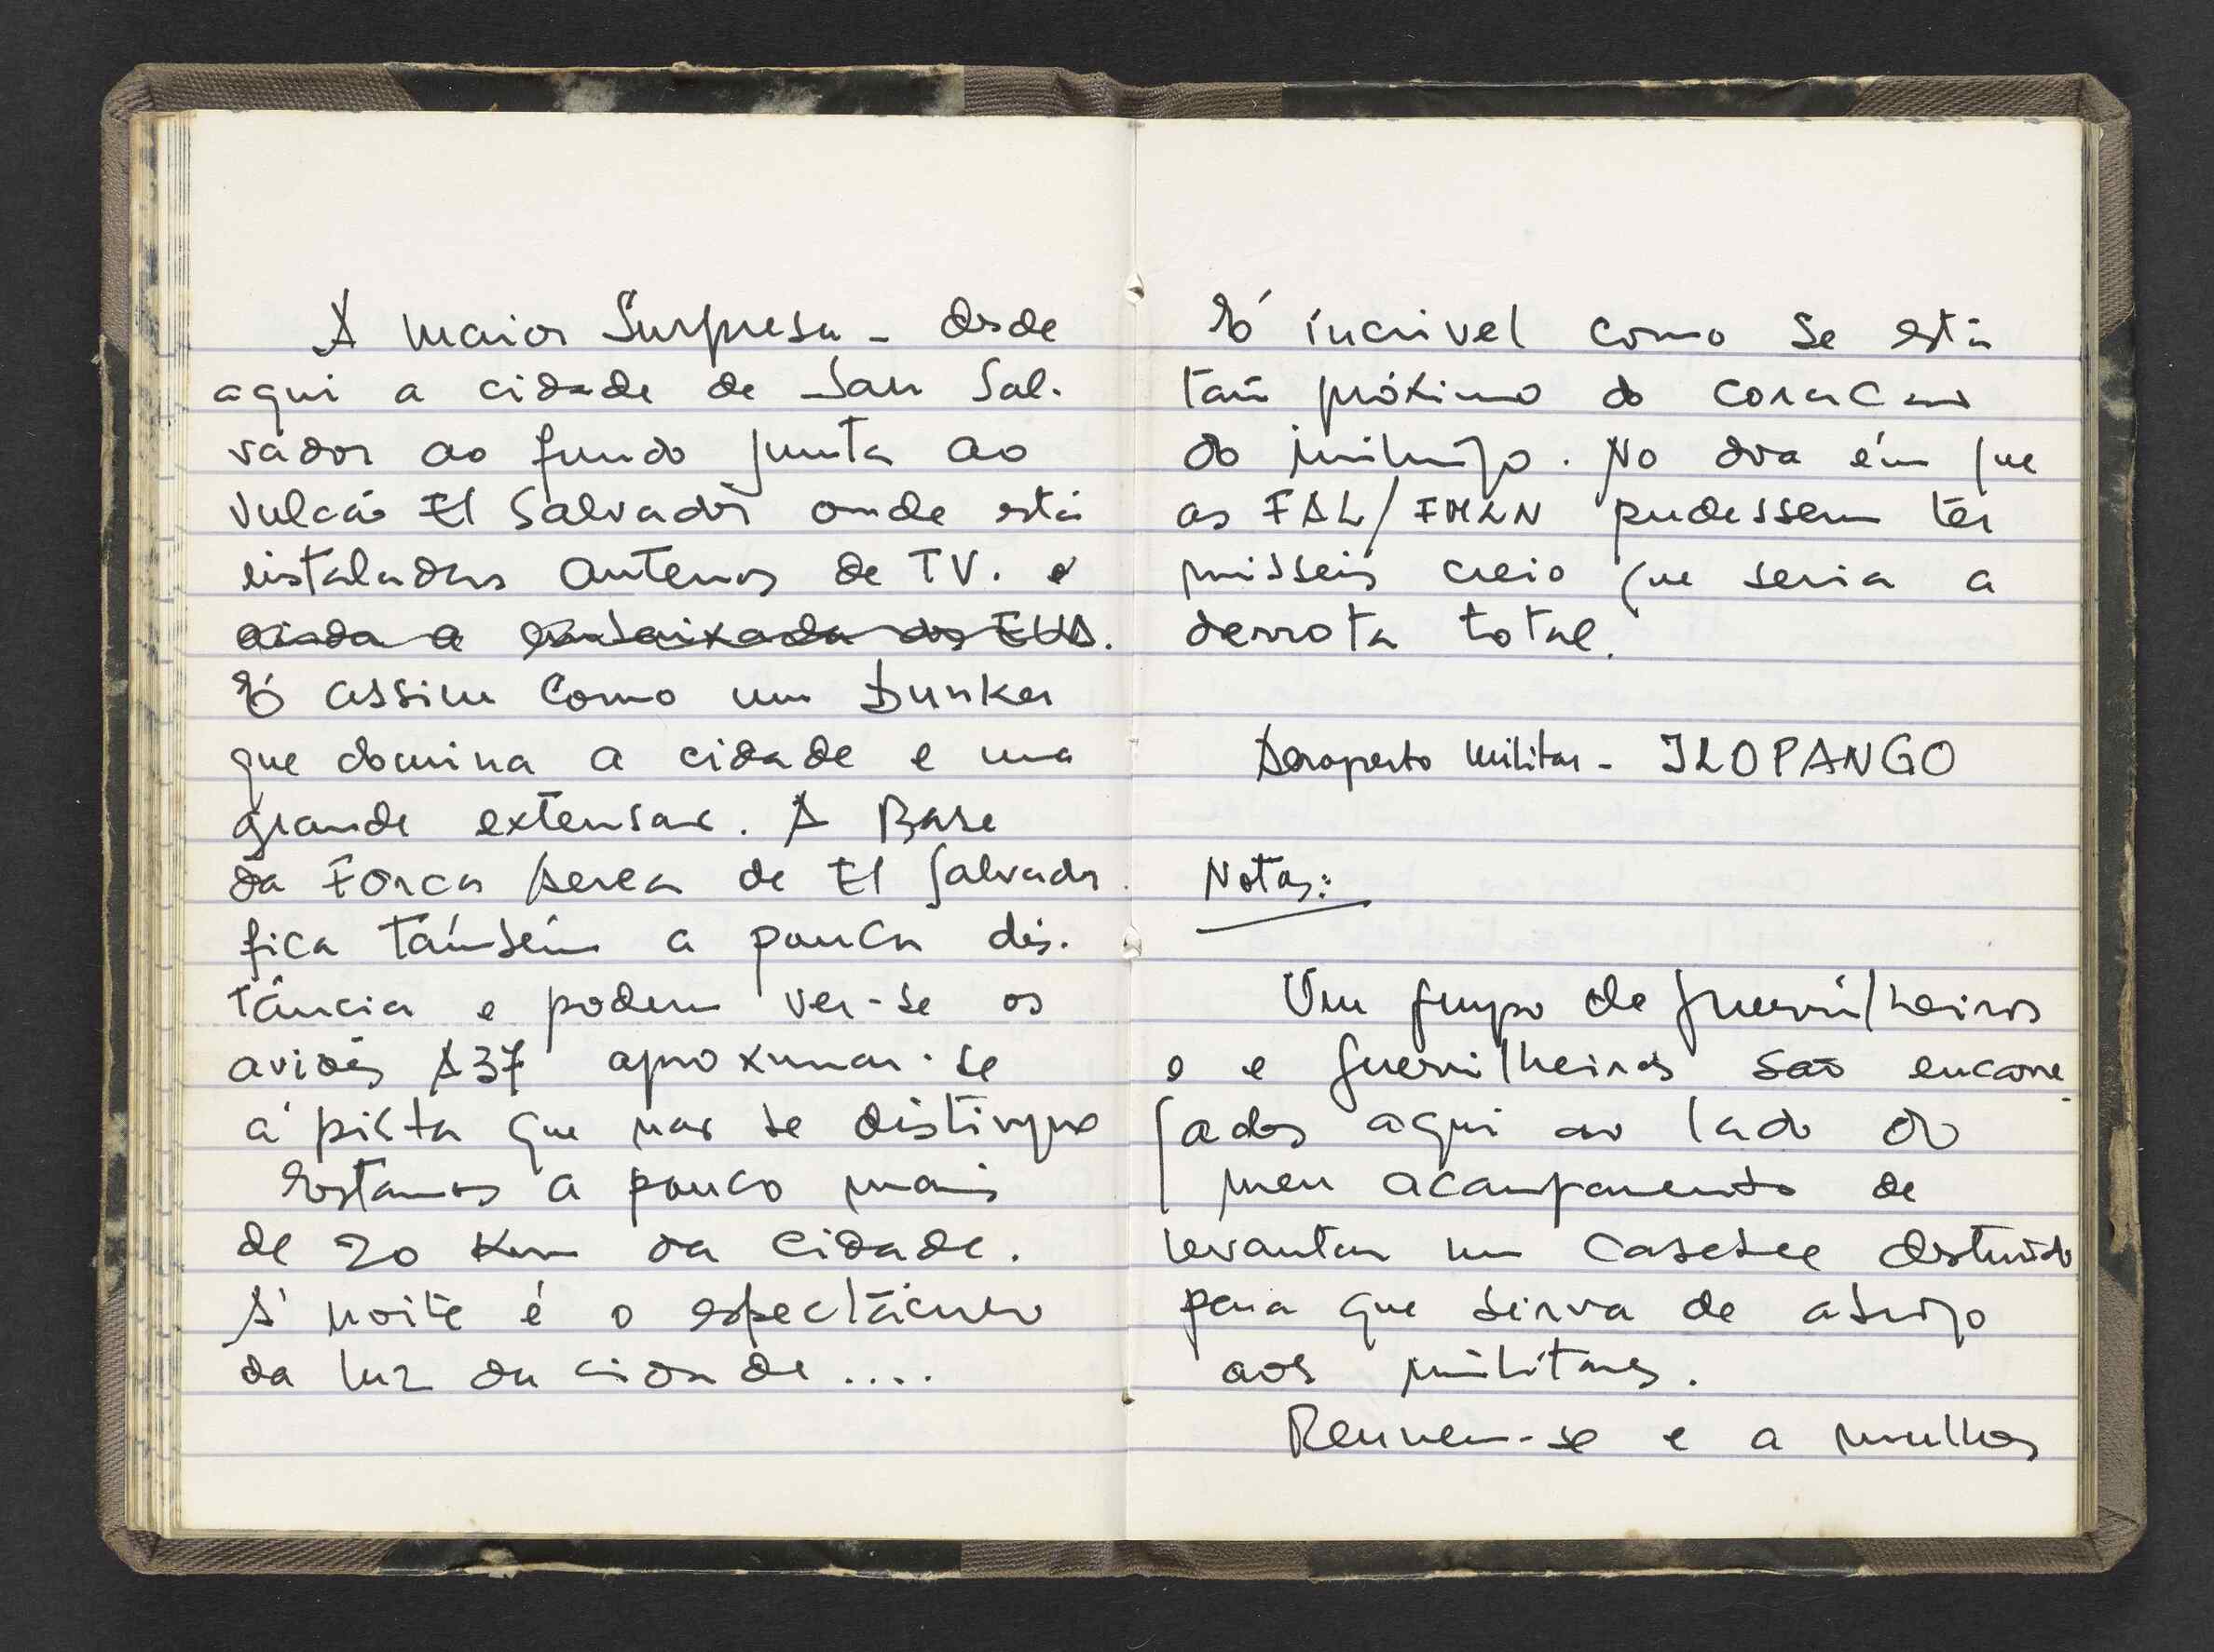 A maior Surpresa - desde
aqui a cidade de San Sal-
vador ao fundo junta ao
vulcão El Salvador onde está
instaladas antenas de TV. e
ainda a embaixada dos EUA.
É assim como um bunker
que domina a cidade e uma
grande extensão. A Base
da Força Aerea de El Salvador
fica também a pouca dis-
tância e podem ver-se os
aviões A37 aproximar-se
á pista que não se distingue
Estamos a pouco mais
de 20 Km da cidade.
Á noite é o espectáculo
da luz da cidade ....
É íncrivel como se está
tão próximo do coração
do inimigo. No dia em que
as FAL/FMLN pudessem ter
misseis creio que seria a
derrota total.
Aeroporto Militar - ILOPANGO
Notas:
Um grupo de guerrilheiros
e guerrilheiras são encarre-
gados aqui ao lado do
meu acampamento de
levantar um casebre distruído
para que sirva de abrigo
aos militares.
Reunem-se e a mulher